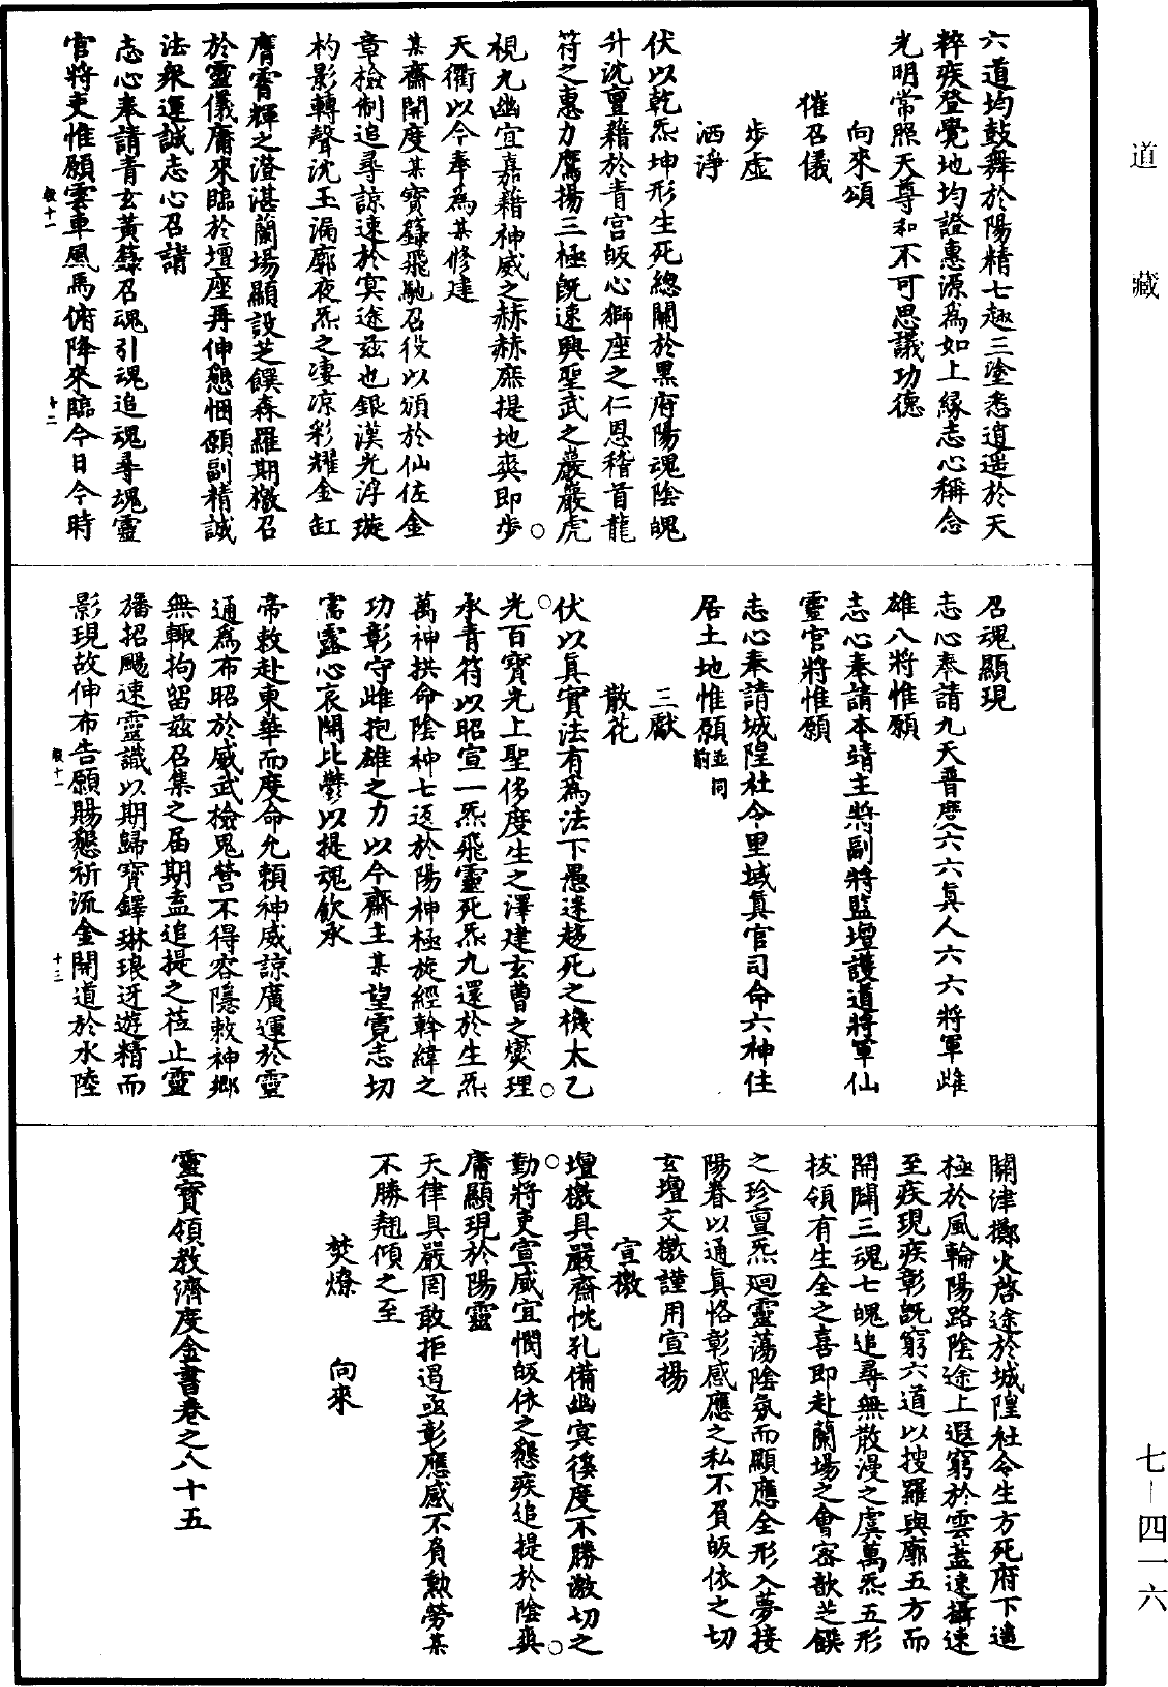 道藏
七—四一六
六道均鼓舞於陽精七趣三塗悉逍遥於天
粹疾登覺地均證惠源為如上緣志心稱念
光明常照天尊和不可思議功德
向來頌
催召儀
步虛
洒淨
伏以乾炁坤形生死總關於黑府陽魂陰魄
升沈亶藉於青宫皈心獅座之仁恩稽首龍
符之惠力鷹揚三極旣速興聖武之巖巖虎
視九幽宜嘉藉神威之赫赫庶提地爽即步
天衢以今奉為某修建
某齋開度某寶籙飛馳召役以頒於仙佐金
章檢制追尋諒速於冥途兹也銀漢光浮璇
杓影轉聲沈玉漏廓夜炁之凄涼彩耀金缸
膺霄輝之澄湛蘭場顯設芝饌森羅期檄召
於靈儀庸來臨於壇座再伸懇悃願副精誠
法衆運誠志心召請
志心奉請青玄黃籙召魂引魂追魂尋魂靈
官將吏惟願雲車風馬俯降來臨今日今時
十二
召魂顯現
志心奉請九天晋麽六六真人六六將軍雌
雄八將惟願
志心奉請本靖主將副將監壇護道將軍仙
靈官將惟願
志心奉請城隍社令里域真官司命六神住
居土地惟願並同前
三獻
散花
伏以真實法有為法下愚迷趍死之機太乙
光百寶光上聖侈度生之澤建玄曹之燮理
承青符以昭宣一炁飛靈死炁九還於生炁
萬神拱命陰神七返於陽神極旋經幹緯之
功彰守雌抱雄之力以今齋主某望霓志切
需露心哀開比鬱以提魂飲承
帝敕赴東華而度命允賴神威諒廣運於靈
通為布昭於威武檢鬼營不得容隱敕神鄉
無輙拘留兹召集之届期盍追提之莅止靈
旛招颺速靈識以期歸寶鐸琳琅迓遊精而
影現故伸布告願賜懇祈流金開道於水陸
十三
關津擲火啓途於城隍社令生方死府下遣
極於風輪陽路陰途上遐窮於雲蓋速攝速
至疾現疾彰旣窮六道以搜羅與廓五方而
開闢三魂七魄追尋無散漫之虞萬炁五形
拔領有生全之喜即赴蘭場之會容歆芝饌
之珍亶炁迴靈蕩陰氛而顯應全形入夢接
陽眷以通真恪彰感應之私不負皈依之切
玄壇文檄謹用宣揚
宣檄
壇檄具嚴齋恍孔備幽冥徯度不勝激切之
勤將吏宣威宜憫皈依之懇疾追提於陰爽
庸顯現於陽靈
天律具嚴罔敢拒遏亟彰應感不負勲勞某
不勝翹傾之至
焚燎　向來
靈寶領教濟度金書卷之八十五